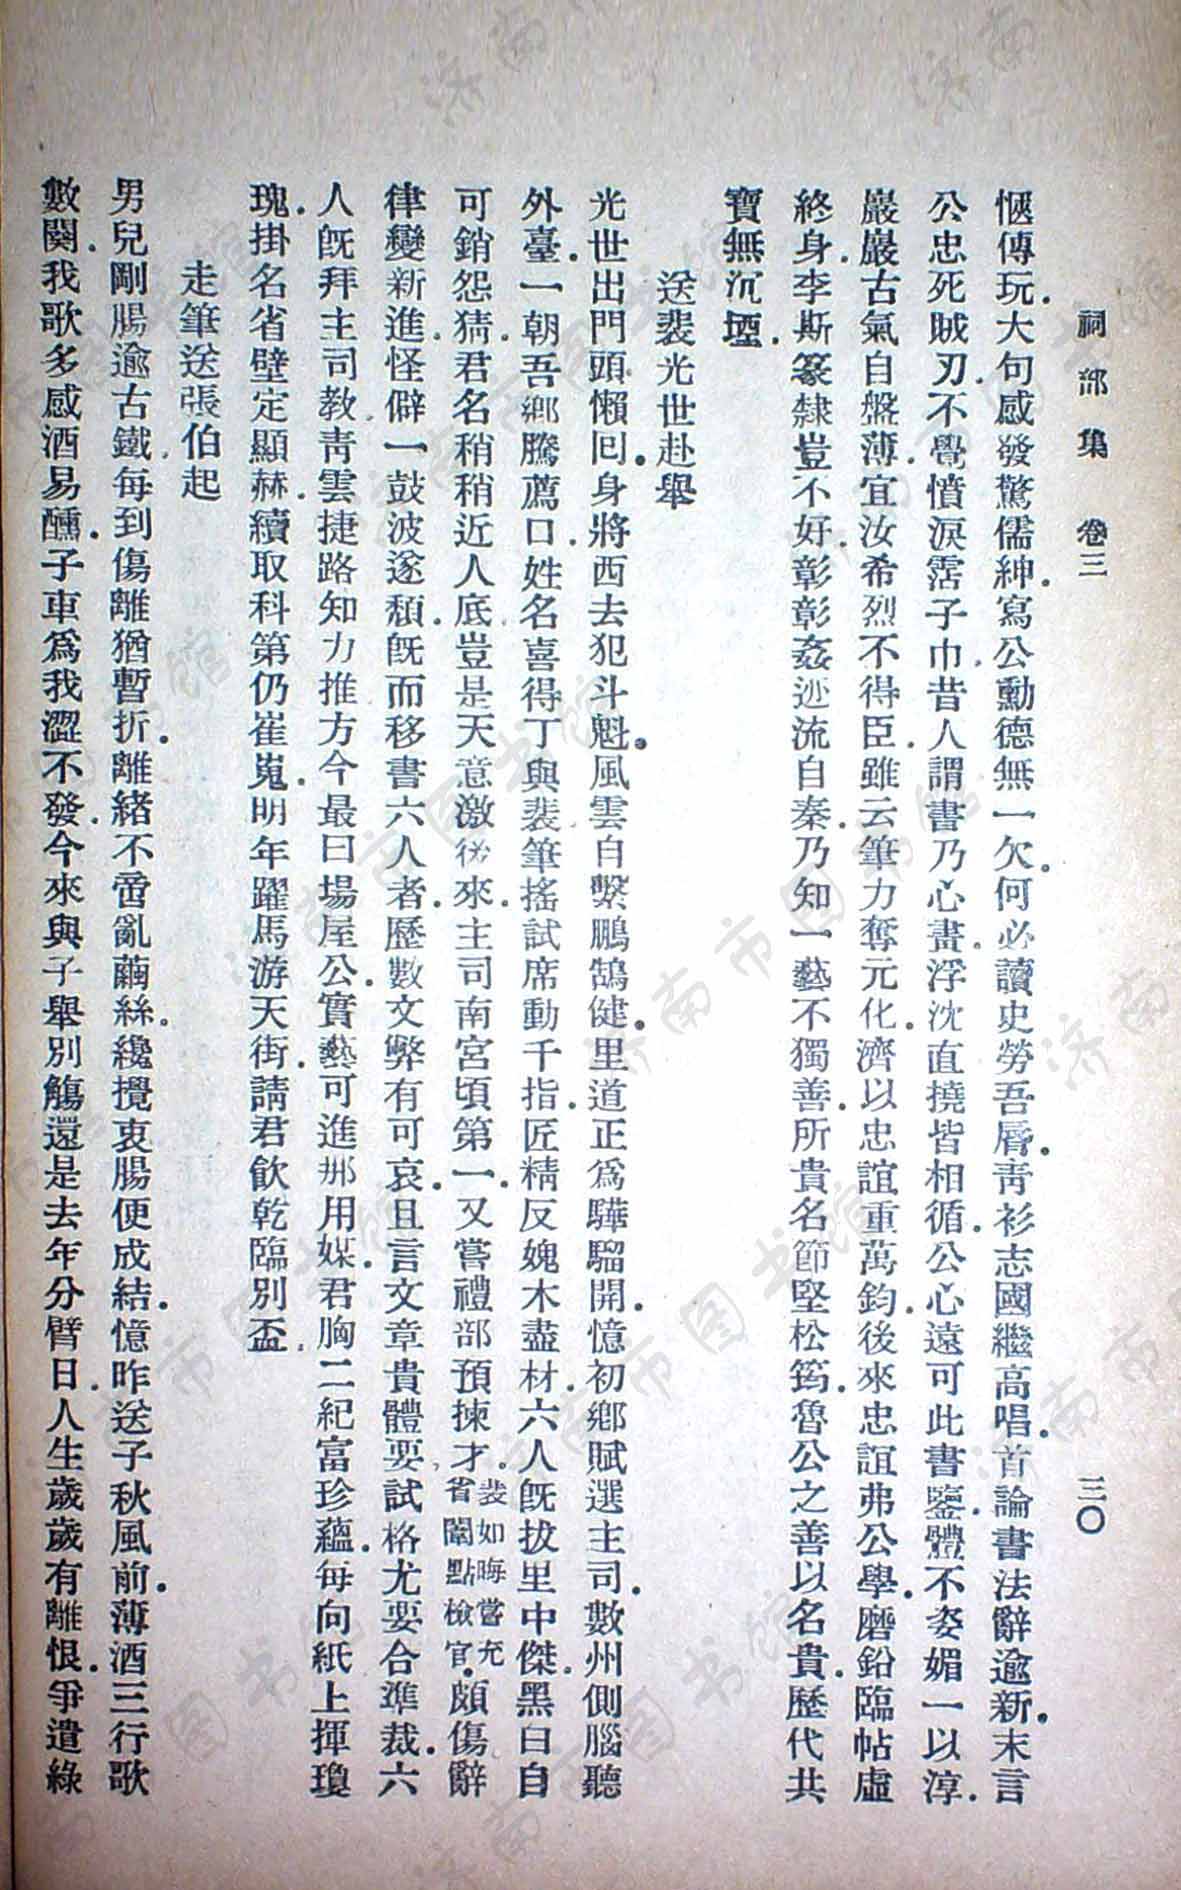 祠部集 卷三 三〇
愜傳玩.大句感發驚儒紳.寫公勳德無一欠.何必讀史勞吾脣.靑衫志國繼高唱.首論書法辭逾新.末言
公忠死賊刃.不覺憤淚霑子巾.昔人謂書乃心畫.浮沈直撓皆相循.公心遠可此書鑒.體不姿媚一以淳.
巖巖古氣自盤薄.宜汝希烈不得臣.雖云筆力奪元化.濟以忠誼重萬鈞.後來忠誼弗公學.磨鉛臨帖虛
終身.李斯篆隸豈不好.彰彰姦迹流自秦.乃知一藝不獨善.所貴名節堅松筠.魯公之善以名貴.歷代共
寶無沉堙.
送裴光世赴舉
光世出門頭懶囘.身將西去犯斗魁.風雲自繫鵬鵠健.里道正爲驊騮開.憶初鄕賦選主司.數州側腦聽
外臺.一朝吾鄕騰薦口.姓名喜得丁與裴.筆搖試席動千指.匠精反媿木盡材.六人旣拔里中傑.黑白自
可銷怨猜.君名稍稍近人底.豈是天意激後來.主司南宮頃第一.又嘗禮部預揀才.裴如晦嘗充省闈點檢官.頗傷辭
律變新進.怪僻一鼓波遂頹.旣而移書六人者.歷數文弊有可哀.且言文章貴體要.試格尤要合準裁.六
人旣拜主司教.靑雲捷路知力推.方今最曰場屋公.實藝可進那用媒.君胸二紀富珍蘊.每向紙上揮瓊
瑰.掛名省壁定顯赫.續取科第仍崔嵬.明年躍馬游天街.請君飮乾臨別盃.
走筆送張伯起
男兒剛腸逾古鐵.每到傷離猶暫折.離緒不啻亂繭絲.纔攪衷腸便成結.憶昨送子秋風前.薄酒三行歌
數闋.我歌多感酒易醺.子車爲我澀不發.今來與子舉別觴.還是去年分臂日.人生歲歲有離恨.爭遣綠